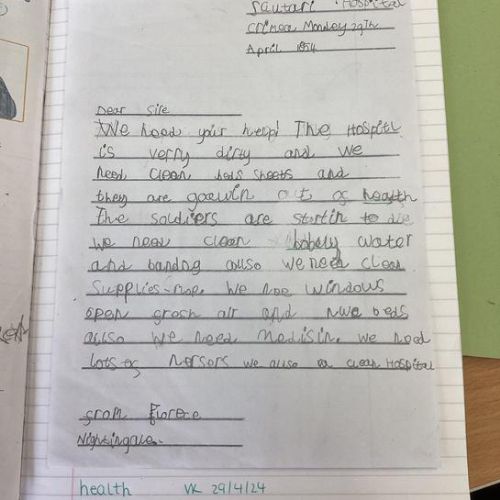 Scutari Hospital
Crimea Monday 29Th
April 1854
Dear Sire
We need your help! The Hospitil
is verry dirty and we
need clean beds sheets and
they are goewin out of health
The soldiers are startin to die
we need clean water
and bandng allso we need clean
Supplies we nee windows
open grash air and nwe beds
allso we need medisin. we need
lots of nersors we allso a clean Hospital
from Florece
Nightingale.
health VK 29/4/24